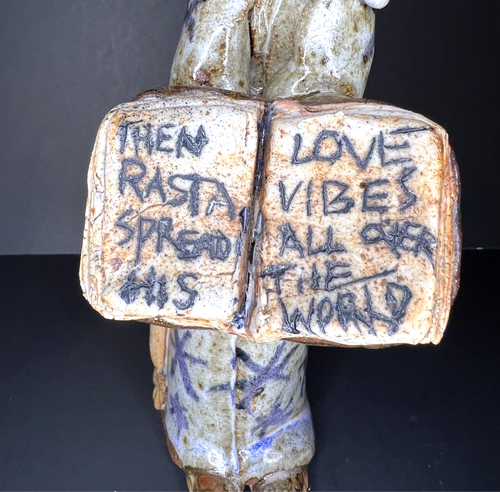 THEN
RASTA
SPREAD
HIS
LOVE
VIBES
ALL OVER
THE
WORLD